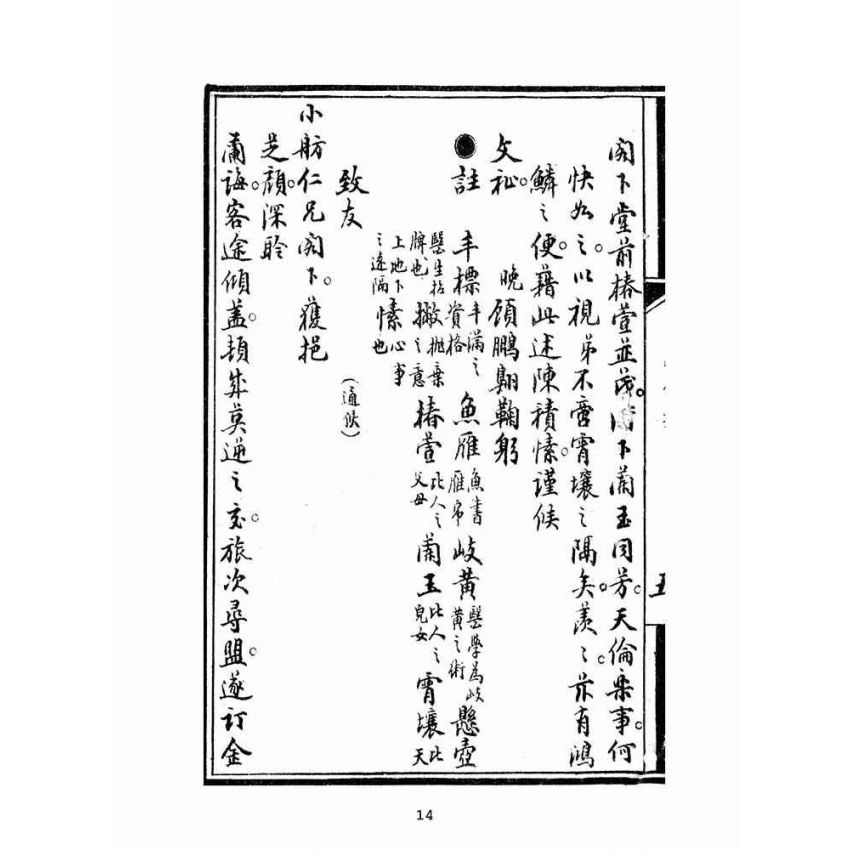 閣下堂前椿萱並茂。階下蘭玉同芳。天倫樂事。何
快如之。以視弟不啻霄壤之隔矣。羨〻。茲有鴻
鱗之便。藉此述陳積愫。謹候
文祉。
晚顧鵬翱鞠躬
●註
丰標 丰滿之資格
魚雁 魚書雁帛
岐黃 醫學為岐黃之術
懸壺 醫生招牌也
撇 拋棄之意
椿萱 比人之父母
蘭玉 比人之兒女
霄壤 比天上地下之遠隔
愫 心事也
致友
(通候)
小舫仁兄閣下。獲挹
芝顏。深聆
蘭誨。客途傾蓋。頓成莫逆之交。旅次尋盟。遂訂金
五
14